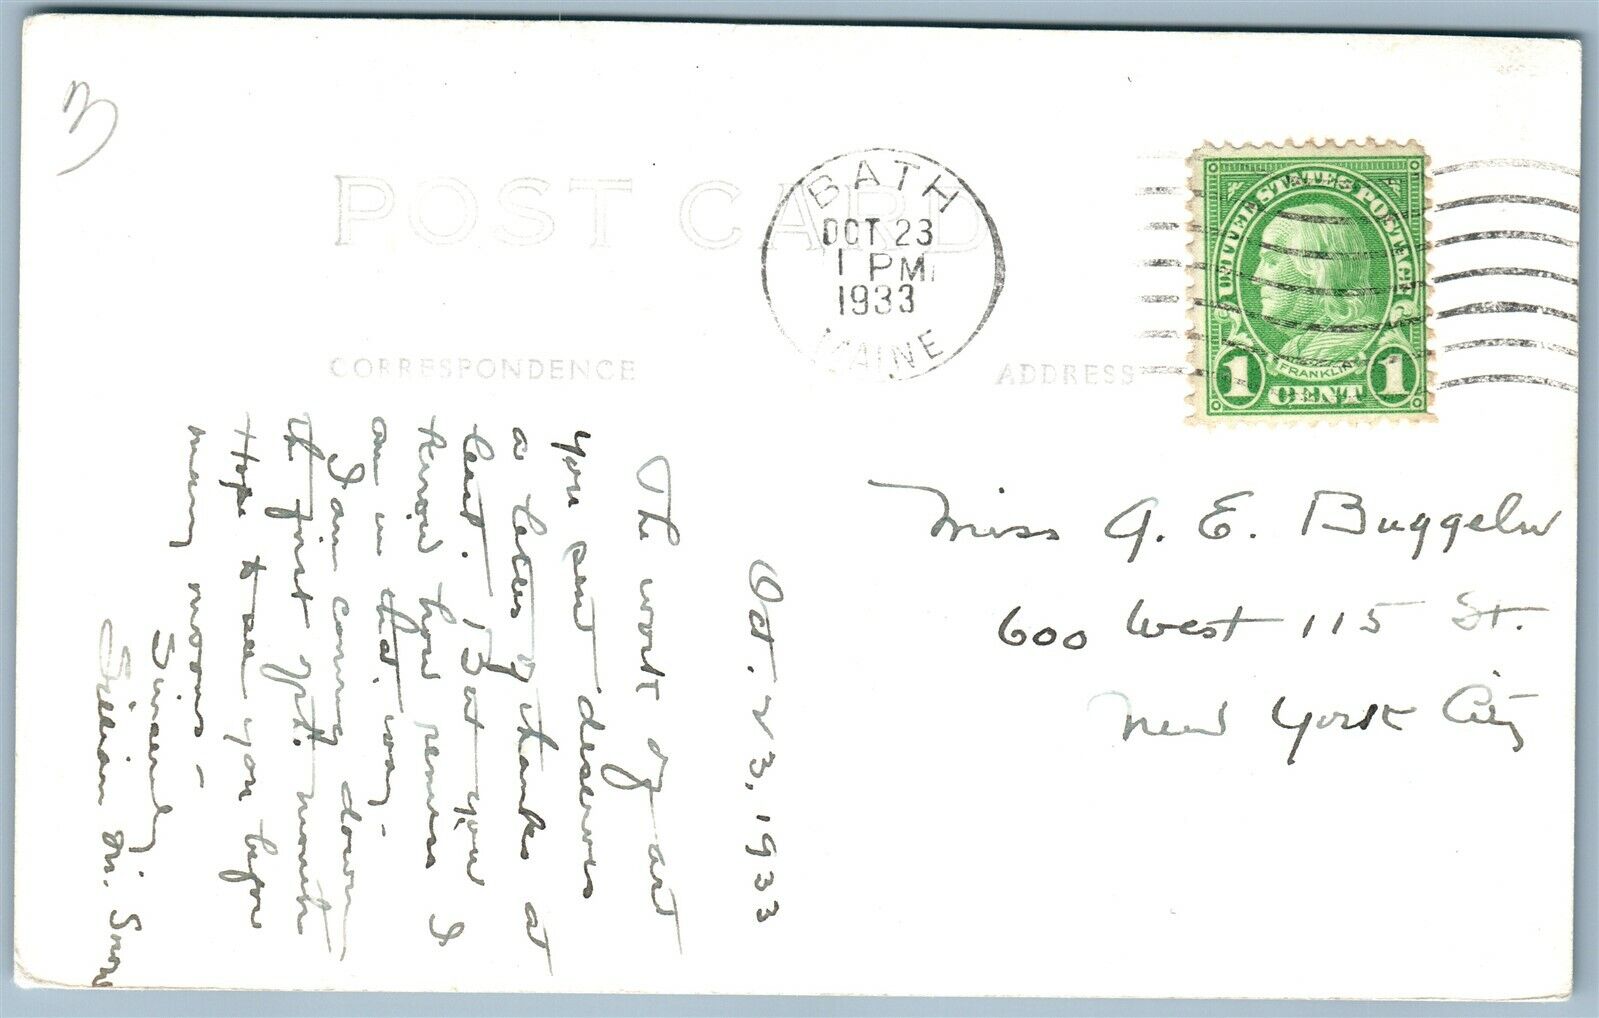 3
POST CARD
BATH
OCT 23
1 PM
1933
MAINE
UNITED STATES POSTAGE
FRANKLIN
1 CENT 1
CORRESPONDENCE
ADDRESS
Oct. 23, 1933
The work of art
you sent deserves
a letter of thanks at
least. But you
know how remiss I
am in that way.
I am coming down
the first of month
Hope to see you before
many moons -
Sincerely,
Lillian M. Snow
Miss A. E. Buggeln
600 West 115 St.
New York City